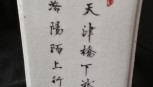 天津橋下
洛陽陌上行